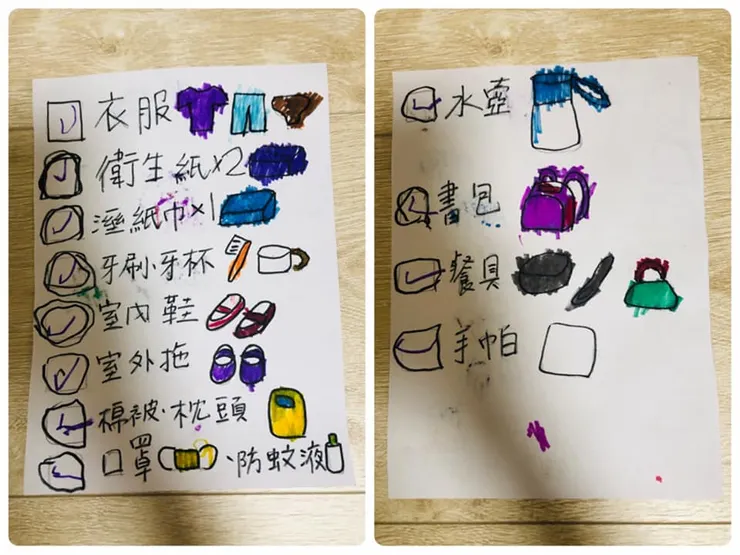 衣服
衛生紙×2
溼紙巾×1
牙刷、牙杯
室內鞋
室外拖
棉被、枕頭
口罩、防蚊液
水壺
書包
餐具
手帕